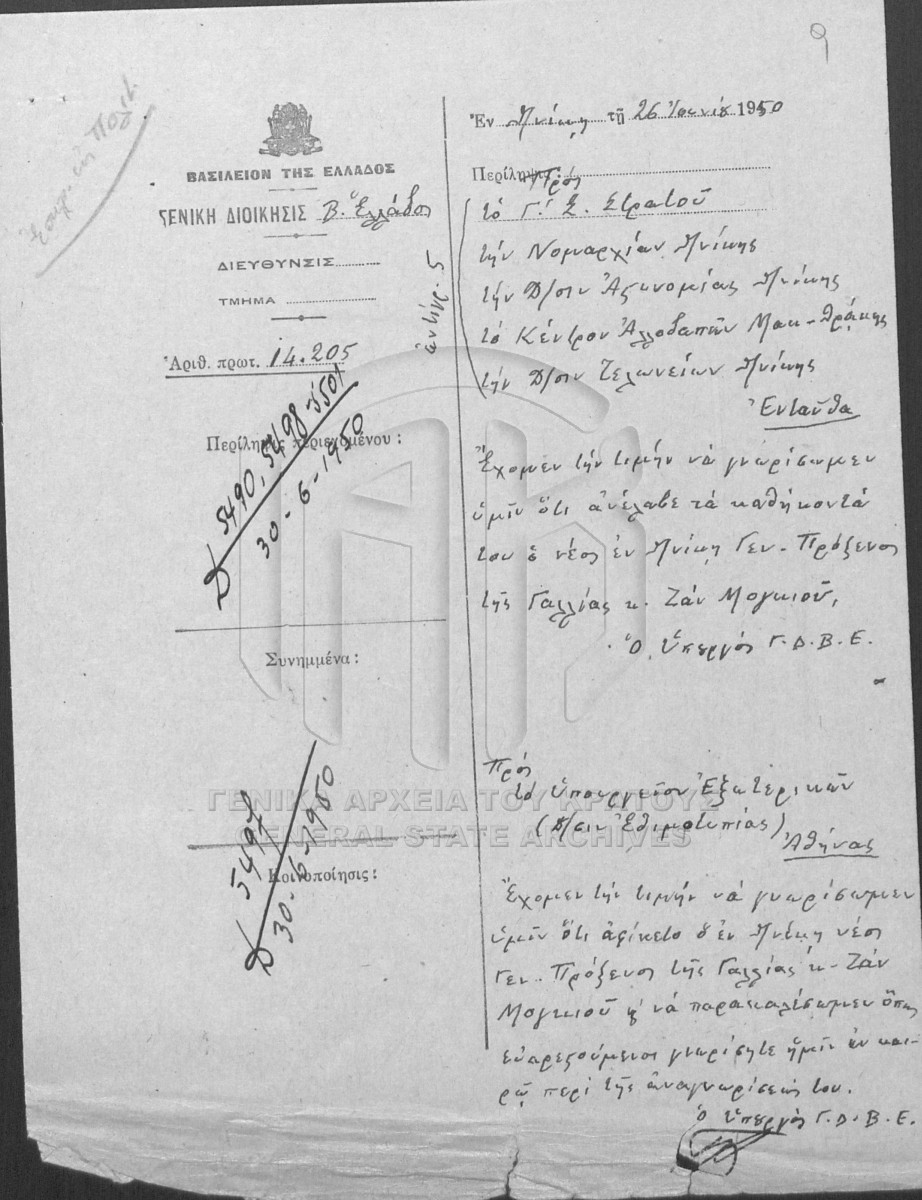 9
ΒΑΣΙΛΕΙΟΝ ΤΗΣ ΕΛΛΑΔΟΣ
ΓΕΝΙΚΗ ΔΙΟΙΚΗΣΙΣ Β. Ἑλλάδος
ΔΙΕΥΘΥΝΣΙΣ
ΤΜΗΜΑ
Ἀριθ. πρωτ. 14.205
Περίληψις περιεχομένου :
5490, 5498-5501
30-6-1950
Συνημμένα :
5497
30-6-1950
Κοινοποίησις :
ἀντίγρ. 5
Ἐν Θ/νίκῃ τῇ 26 Ἰουνίου 1950
Περίληψις
Πρός
τό Γ' Σ. Στρατοῦ
τήν Νομαρχίαν Θ/νίκης
τήν Δ/σιν Ἀστυνομίας Θ/νίκης
τό Κέντρον Ἀλλοδαπῶν Μακ-Θράκης
τήν Δ/σιν Τελωνείων Θ/νίκης
Ἐνταῦθα
Ἔχομεν τήν τιμήν νά γνωρίσωμεν
ὑμῖν ὅτι ἀνέλαβε τά καθήκοντά
του ὁ νέος ἐν Θ/νίκῃ Γεν. Πρόξενος
τῆς Γαλλίας κ. Ζάν Μογκιοῦ,
Ὁ Ὑπουργός Γ.Δ.Β.Ε.
Πρός
τό Ὑπουργεῖον Ἐξωτερικῶν
(Δ/σιν Ἐθιμοτυπίας)
Ἀθήνας
Ἔχομεν τήν τιμήν νά γνωρίσωμεν
ὑμῖν ὅτι ἀφίκετο ὁ ἐν Θ/νίκῃ νέος
Γεν. Πρόξενος τῆς Γαλλίας κ. Ζάν
Μογκιοῦ καί νά παρακαλέσωμεν ὅπως
εὐαρεστούμενοι γνωρίσητε ἡμῖν ἐν και-
ρῷ περί τῆς ἀναγνωρίσεώς του.
Ὁ Ὑπουργός Γ.Δ.Β.Ε.
ΓΕΝΙΚΑ ΑΡΧΕΙΑ ΤΟΥ ΚΡΑΤΟΥΣ
GENERAL STATE ARCHIVES